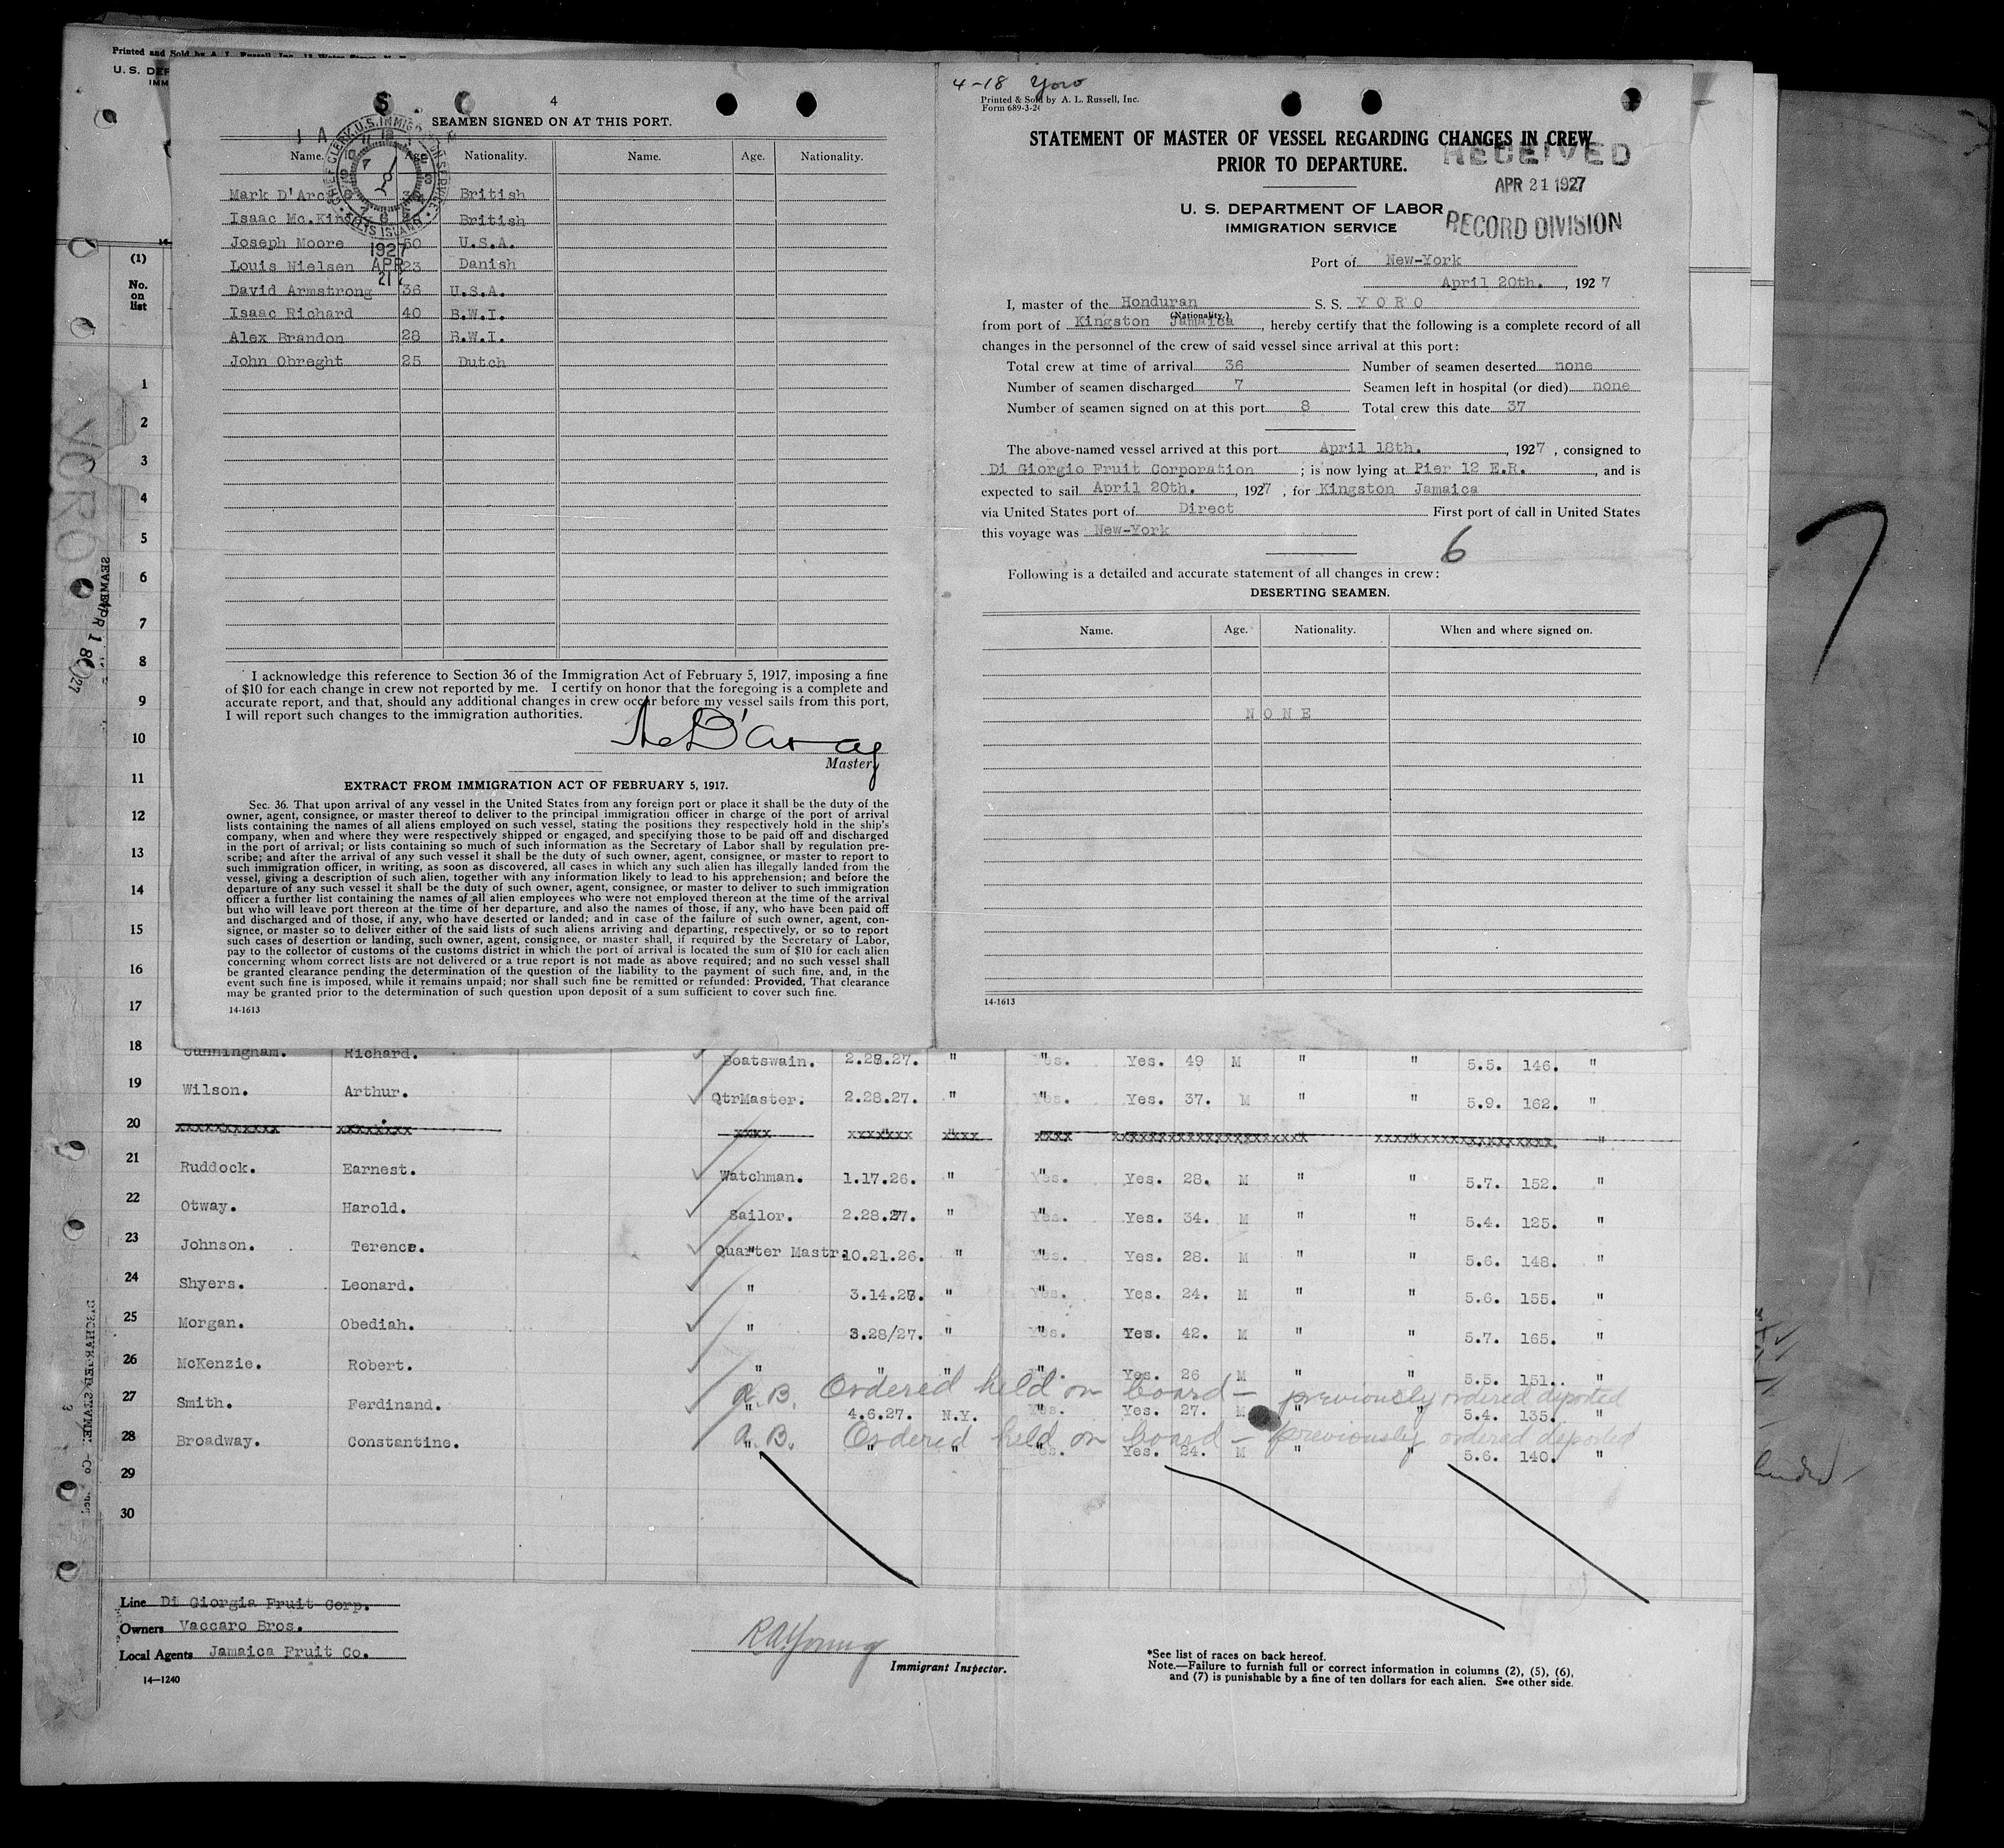 Printed and Sold by A. L. Russell, Inc.
U. S. DEP
IMM
4
SEAMEN SIGNED ON AT THIS PORT.
Name. Age. Nationality. Name. Age. Nationality.
Mark D'Arc British
Isaac Mc. British
Joseph Moore 50 U.S.A.
Louis Nielsen 23 Danish
David Armstrong 36 U.S.A.
Isaac Richard 40 B.W.I.
Alex Brandon 28 B.W.I.
John Obreght 25 Dutch
CHIEF CLERK, U.S. IMMIGRATION SERVICE
ELLIS ISLAND
1927
APR
21
I acknowledge this reference to Section 36 of the Immigration Act of February 5, 1917, imposing a fine
of $10 for each change in crew not reported by me. I certify on honor that the foregoing is a complete and
accurate report, and that, should any additional changes in crew occur before my vessel sails from this port,
I will report such changes to the immigration authorities.
Master
EXTRACT FROM IMMIGRATION ACT OF FEBRUARY 5, 1917.
Sec. 36. That upon arrival of any vessel in the United States from any foreign port or place it shall be the duty of the
owner, agent, consignee, or master thereof to deliver to the principal immigration officer in charge of the port of arrival
lists containing the names of all aliens employed on such vessel, stating the positions they respectively hold in the ship's
company, when and where they were respectively shipped or engaged, and specifying those to be paid off and discharged
in the port of arrival; or lists containing so much of such information as the Secretary of Labor shall by regulation pre-
scribe; and after the arrival of any such vessel it shall be the duty of such owner, agent, consignee, or master to report to
such immigration officer, in writing, as soon as discovered, all cases in which any such alien has illegally landed from the
vessel, giving a description of such alien, together with any information likely to lead to his apprehension; and before the
departure of any such vessel it shall be the duty of such owner, agent, consignee, or master to deliver to such immigration
officer a further list containing the names of all alien employees who were not employed thereon at the time of the arrival
but who will leave port thereon at the time of her departure, and also the names of those, if any, who have been paid off
and discharged and of those, if any, who have deserted or landed; and in case of the failure of such owner, agent, con-
signee, or master so to deliver either of the said lists of such aliens arriving and departing, respectively, or so to report
such cases of desertion or landing, such owner, agent, consignee, or master shall, if required by the Secretary of Labor,
pay to the collector of customs of the customs district in which the port of arrival is located the sum of $10 for each alien
concerning whom correct lists are not delivered or a true report is not made as above required; and no such vessel shall
be granted clearance pending the determination of the question of the liability to the payment of such fine, and, in the
event such fine is imposed, while it remains unpaid; nor shall such fine be remitted or refunded: Provided, That clearance
may be granted prior to the determination of such question upon deposit of a sum sufficient to cover such fine.
14-1613
4-18 Yoro
Printed & Sold by A. L. Russell, Inc.
Form 689-3-26
STATEMENT OF MASTER OF VESSEL REGARDING CHANGES IN CREW
PRIOR TO DEPARTURE.
RECEIVED
APR 21 1927
RECORD DIVISION
U. S. DEPARTMENT OF LABOR
IMMIGRATION SERVICE
Port of New-York
April 20th., 1927
I, master of the Honduran S. S. YORO
(Nationality.)
from port of Kingston Jamaica, hereby certify that the following is a complete record of all
changes in the personnel of the crew of said vessel since arrival at this port:
Total crew at time of arrival 36 Number of seamen deserted none
Number of seamen discharged 7 Seamen left in hospital (or died) none
Number of seamen signed on at this port 8 Total crew this date 37
The above-named vessel arrived at this port April 18th., 1927, consigned to
Di Giorgio Fruit Corporation; is now lying at Pier 12 E.R., and is
expected to sail April 20th., 1927, for Kingston Jamaica
via United States port of Direct First port of call in United States
this voyage was New-York
6
Following is a detailed and accurate statement of all changes in crew:
DESERTING SEAMEN.
Name. Age. Nationality. When and where signed on.
NONE
14-1613
7
(1)
No.
on
list
1
2
3
4
5
6
7
8
9
10
11
12
13
14
15
16
17
YORO
18 Cunningham. Richard. Boatswain. 2.28.27. " Yes. Yes. 49 M " " 5.5. 146. "
19 Wilson. Arthur. QtrMaster. 2.28.27. " Yes. Yes. 37. M " " 5.9. 162. "
20 xxxxxxxxxxx xxxxxxxx xxxx xxxxxxx xxxx xxxx xxxxxxxxxxxxxxxxxxxx xxxxxxxxxxxxxxxxxx. "
21 Ruddock. Earnest. Watchman. 1.17.26. " Yes. Yes. 28. M " " 5.7. 152. "
22 Otway. Harold. Sailor. 2.28.27. " Yes. Yes. 34. M " " 5.4. 125. "
23 Johnson. Terence. Quarter Mastr. 10.21.26. " Yes. Yes. 28. M " " 5.6. 148. "
24 Shyers. Leonard. " 3.14.27. " Yes. Yes. 24. M " " 5.6. 155. "
25 Morgan. Obediah. " 3.28/27. " Yes. Yes. 42. M " " 5.7. 165. "
26 McKenzie. Robert. " " " " Yes. 26 M " " 5.5. 151. "
A.B. Ordered held on board — previously ordered deported
27 Smith. Ferdinand. " 4.6.27. N.Y. Yes. Yes. 27. M " " 5.4. 135. "
A.B. Ordered held on board — previously ordered deported
28 Broadway. Constantine. " " " Yes. Yes. 24. M " " 5.6. 140. "
29
30
Line Di Giorgia Fruit Corp.
Owners Vaccaro Bros.
Local Agents Jamaica Fruit Co.
14—1240
R A Young
Immigrant Inspector.
*See list of races on back hereof.
Note.—Failure to furnish full or correct information in columns (2), (5), (6),
and (7) is punishable by a fine of ten dollars for each alien. See other side.